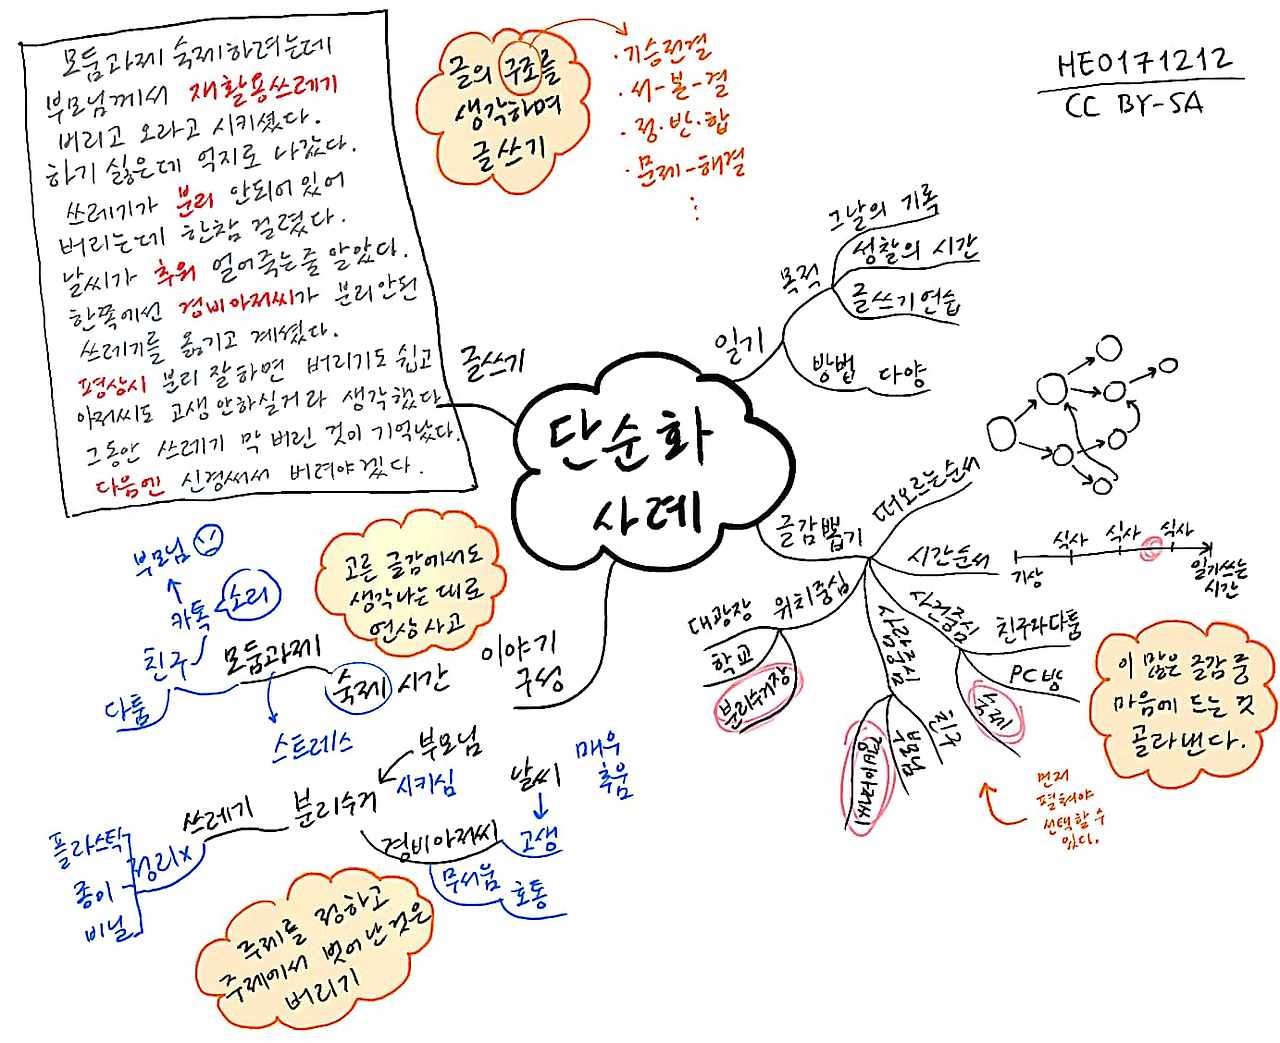 모둠과제 숙제하려는데
부모님께서 재활용쓰레기
버리고 오라고 시키셨다.
하기 싫은데 억지로 나갔다.
쓰레기가 분리 안되어 있어
버리는데 한참 걸렸다.
날씨가 추워 얼어죽는줄 알았다.
한쪽에선 경비아저씨가 분리안된
쓰레기를 옮기고 계셨다.
평상시 분리 잘하면 버리기도 쉽고
아저씨도 고생안하실거라 생각했다
그동안 쓰레기 막 버린 것이 기억났다.
다음엔 신경써서 버려야겠다.
글의 구조를
생각하며
글쓰기
·기승전결
·서-본-결
·정·반·합
·문제-해결
⋮
HE0171212
CC BY-SA
단순화
사례
글쓰기
일기
목적
그날의 기록
성찰의 시간
글쓰기연습
방법
다양
글감뽑기
떠오르는순서
시간순서
기상
식사
식사
식사
일기쓰는
시간
사건중심
친구와다툼
PC방
숙제
사람중심
친구
부모님
경비아저씨
위치중심
대광장
학교
분리수거장
이 많은 글감 중
마음에 드는 것
골라낸다.
먼저
펼쳐야
선택할 수
있다.
이야기
구성
고른 글감에서도
생각나는 대로
연상사고
숙제 시간
모둠과제
스트레스
친구
다툼
카톡
소리
부모님
부모님
시키심
분리수거
쓰레기
정리x
플라스틱
종이
비닐
경비아저씨
무서움
호통
고생
날씨
매우
추움
주제를 정하고
주제에서 벗어난것은
버리기